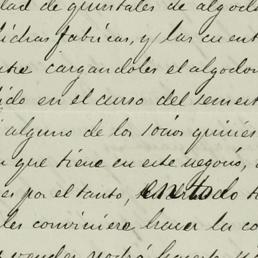 dad de quintales de algodo
dichas fabricas, y las cuent
cargandoles el algodon
ido en el curso del semest
alguno de los socios quisies
que tiene en este negocio,
es por el tanto,
les conviniere hacer la co
podrá hacerlo